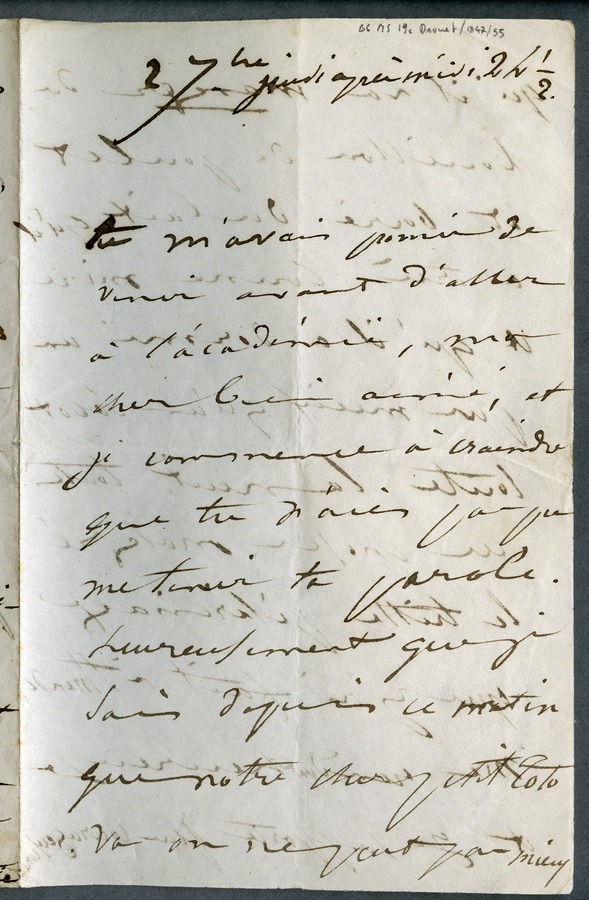 BC MS 19c Drouet/1847/55
2 7bre jeudi après midi. 2 h ½.
tu m'avais promis de
venir avant d'aller
à l'académie, mon
cher bien aimé, et
je commence à craindre
que tu n'aies pas pu
me tenir ta parole.
heureusement que je
sais depuis ce matin
que notre cher petit Toto
va on ne peut pas mieux